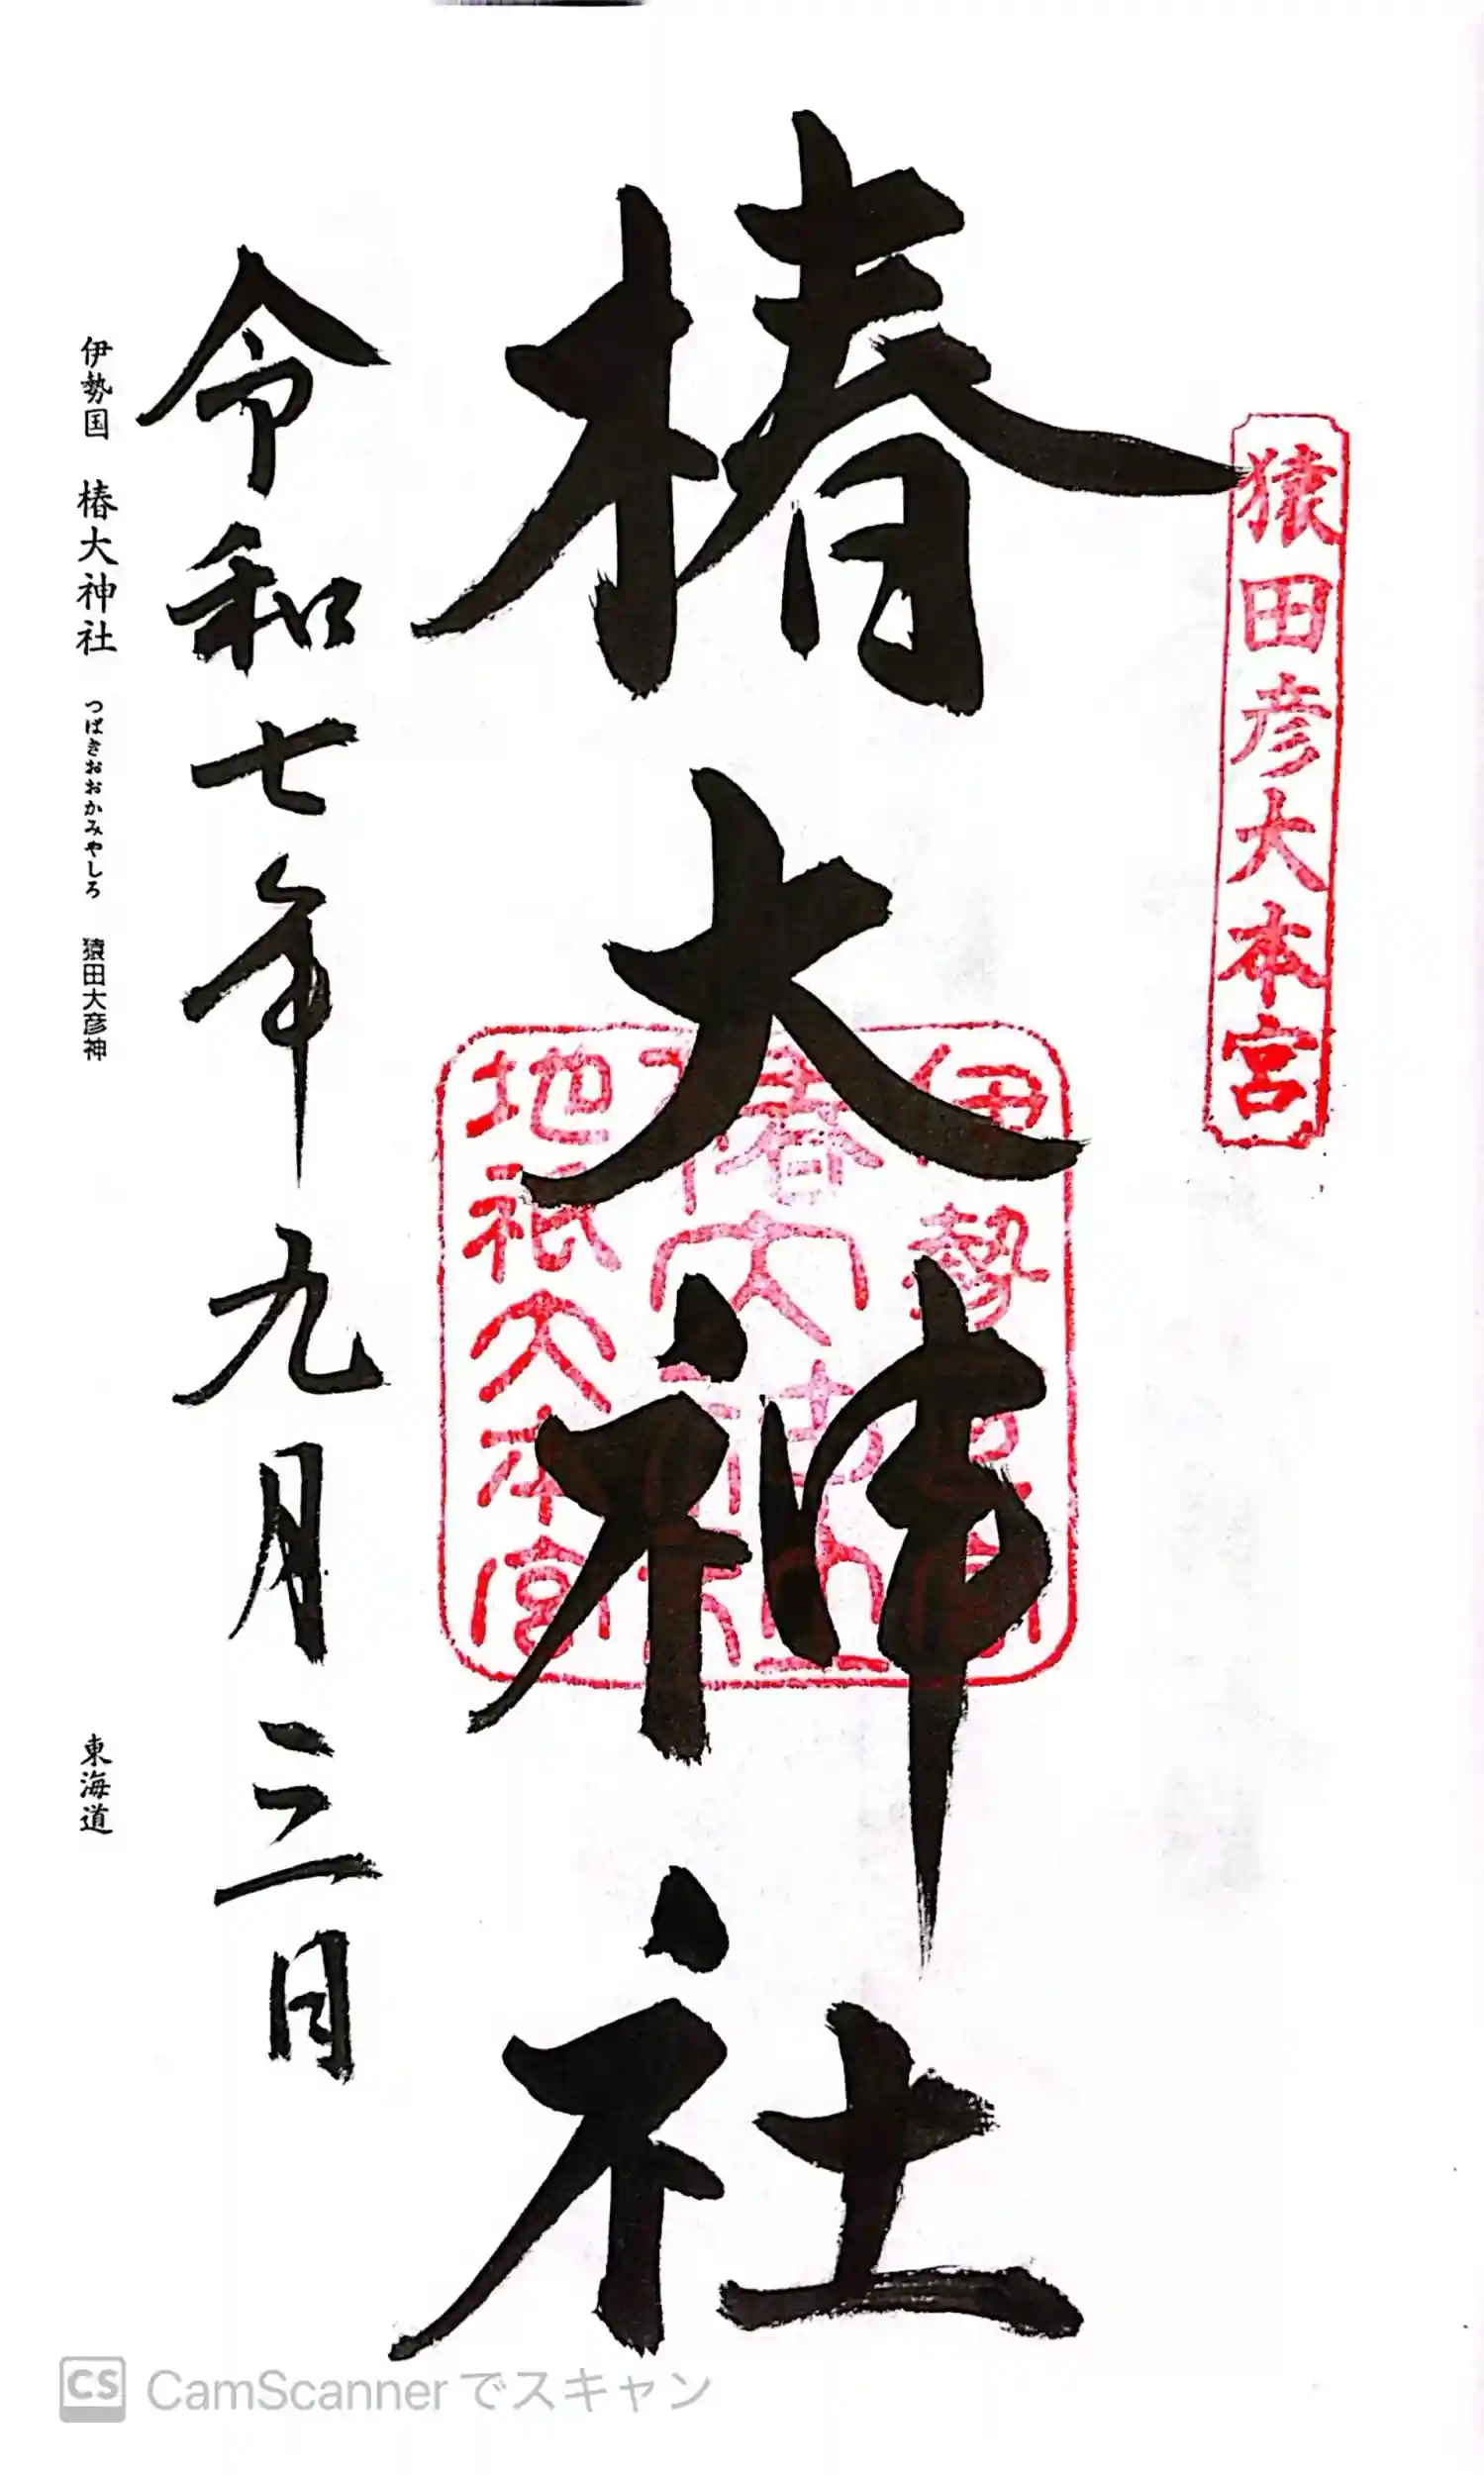 猿田彦大本宮
椿大神社
伊勢
椿大神社
地祇大本宮
令和七年九月三日
伊勢国 椿大神社 つばきおおかみやしろ 猿田大彦神 東海道
CS CamScannerでスキャン